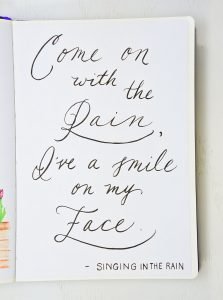 Come on
with the
Rain,
I've a smile
on my
Face.
- SINGING IN THE RAIN